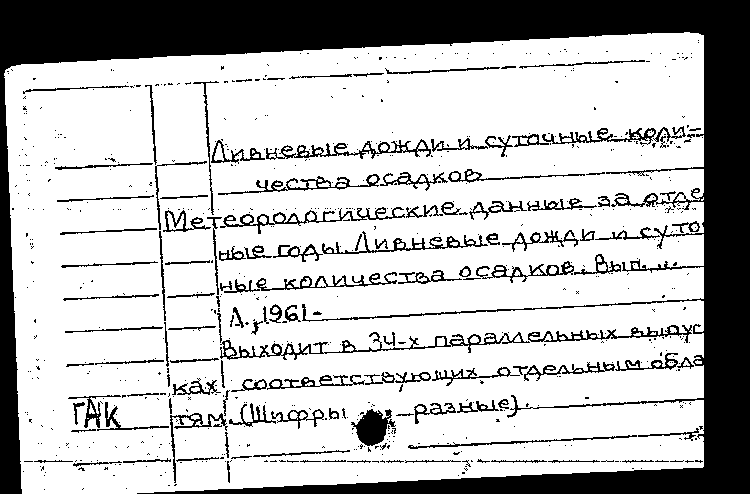 Ливневые дожди и суточные коли=
чества осадков
Метеорологические данные за отде
ные годы. Ливневые дожди и суто
ные количества осадков. Вып. ...
Л., 1961-
Выходит в 34-х параллельных выпус
ках, соответствующих отдельным обла
ГАК тям. (Шифры разные).